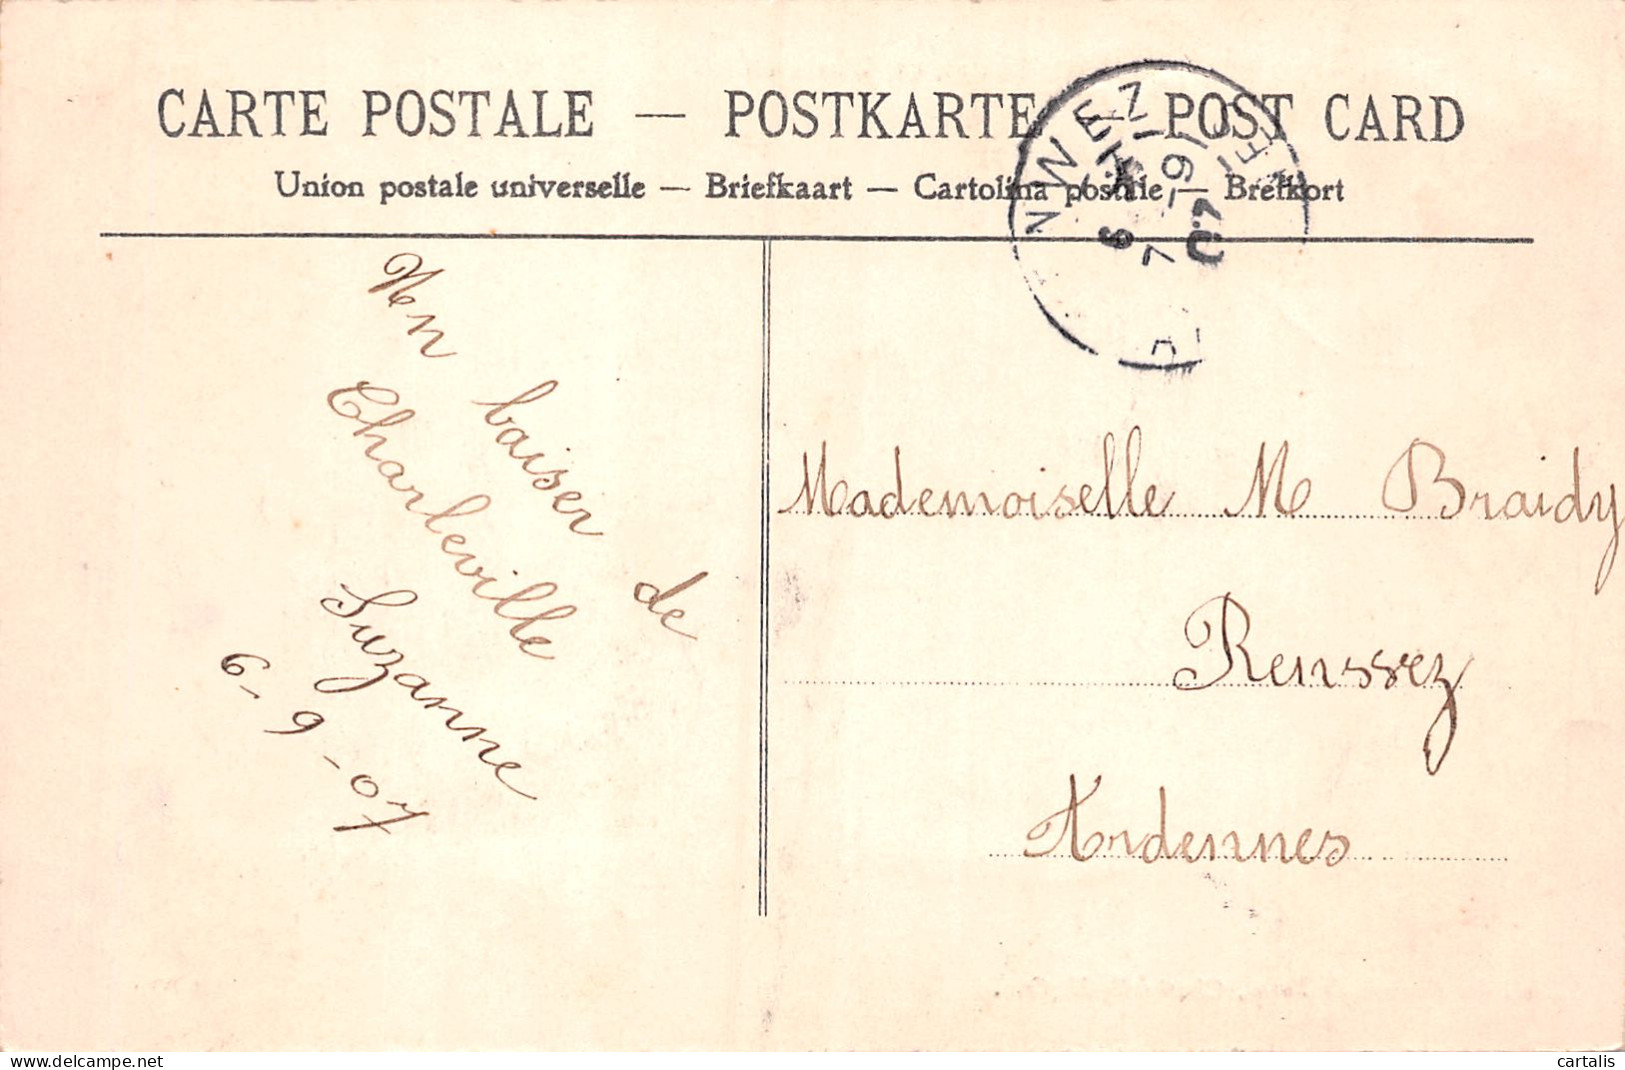 CARTE POSTALE — POSTKARTE — POST CARD
Union postale universelle — Briefkaart — Cartolina postale — Brefkort
6
7 - 9
07
baiser de
Charleville
Suzanne
6-9-07
Mademoiselle M Braidy
Renssez
Ardennes
www.delcampe.net
cartalis